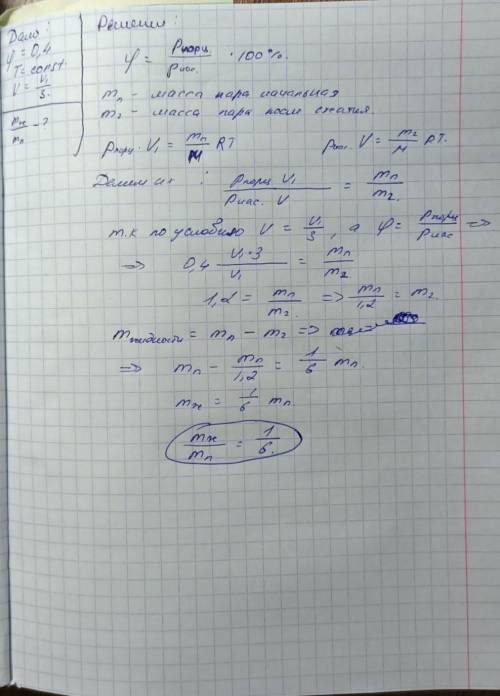 Дано:
φ = 0,4
T = const
V = V₁/3.
mж/mп - ?
Решение:
φ = Pпарц./Pнас. · 100%.
mп - масса пара начальная
m₂ - масса пара после сжатия.
Pпарц. V₁ = mп/M RT
Pнас. V = m₂/M RT.
Делим их : Pпарц. V₁/Pнас. V = mп/m₂.
т.к по условию V = V₁/3, а φ = Pпарц/Pнас =>
=> 0,4 V₁·3/V₁ = mп/m₂
1,2 = mп/m₂. => mп/1,2 = m₂.
mжидкости = mп - m₂ =>
=> mп - mп/1,2 = 1/6 mп.
mж = 1/6 mп.
mж/mп = 1/6.